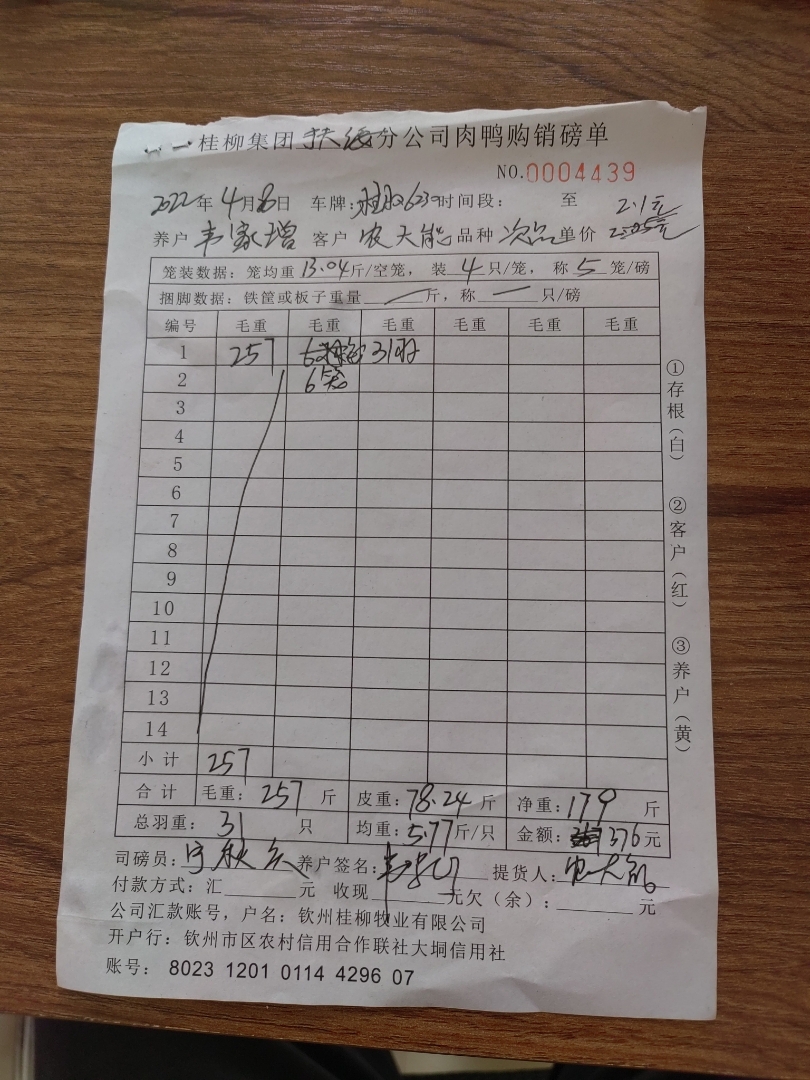 桂柳集团扶绥分公司肉鸭购销磅单
NO.0004439
2022年4月8日 车牌: 时间段: 至 2.1元
养户 韦家增 客户 农大能 品种 次品 单价
笼装数据:笼均重13.04斤/空笼, 装4只/笼, 称5笼/磅
捆脚数据:铁筐或板子重量 — 斤,称 — 只/磅
编号 毛重 毛重 毛重 毛重 毛重 毛重
1 257 31羽
2 6笼
3
4
5
6
7
8
9
10
11
12
13
14
小计 257
合计 毛重:257斤 皮重:78.24斤 净重:179斤
总羽重:31只 均重:5.77斤/只 金额:376元
司磅员: 养户签名: 提货人:农大能
付款方式:汇 元 收现 元欠(余): 元
公司汇款账号,户名:钦州桂柳牧业有限公司
开户行:钦州市区农村信用合作联社大垌信用社
账号: 8023 1201 0114 4296 07
①存根(白) ②客户(红) ③养户(黄)